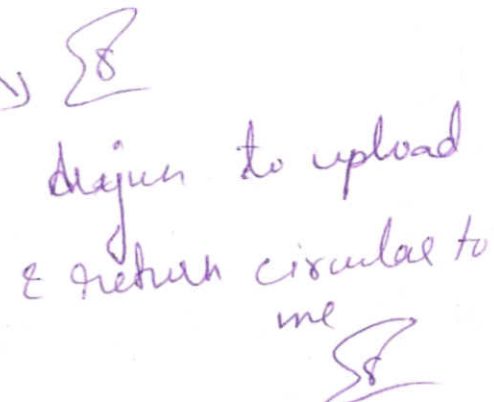 Arjun to upload
& return circular to
me